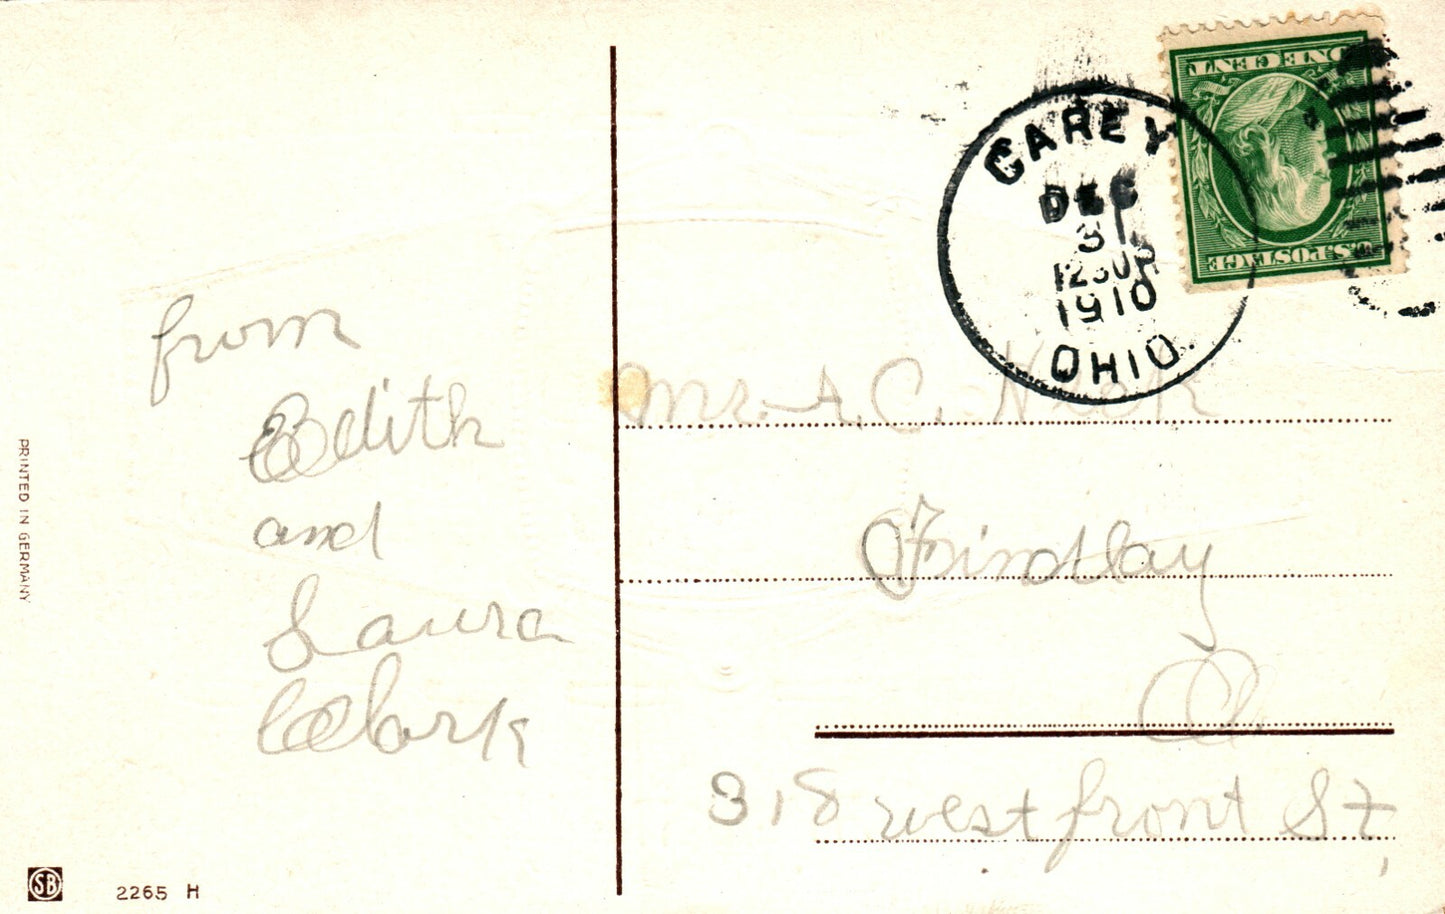 from
Edith
and
Laura
Clark
PRINTED IN GERMANY
SB
2265 H
CAREY
DEC
31
1230P
1910
OHIO.
ONE CENT
U.S. POSTAGE
Mr. A. C.
Findlay
O.
318 west front St,